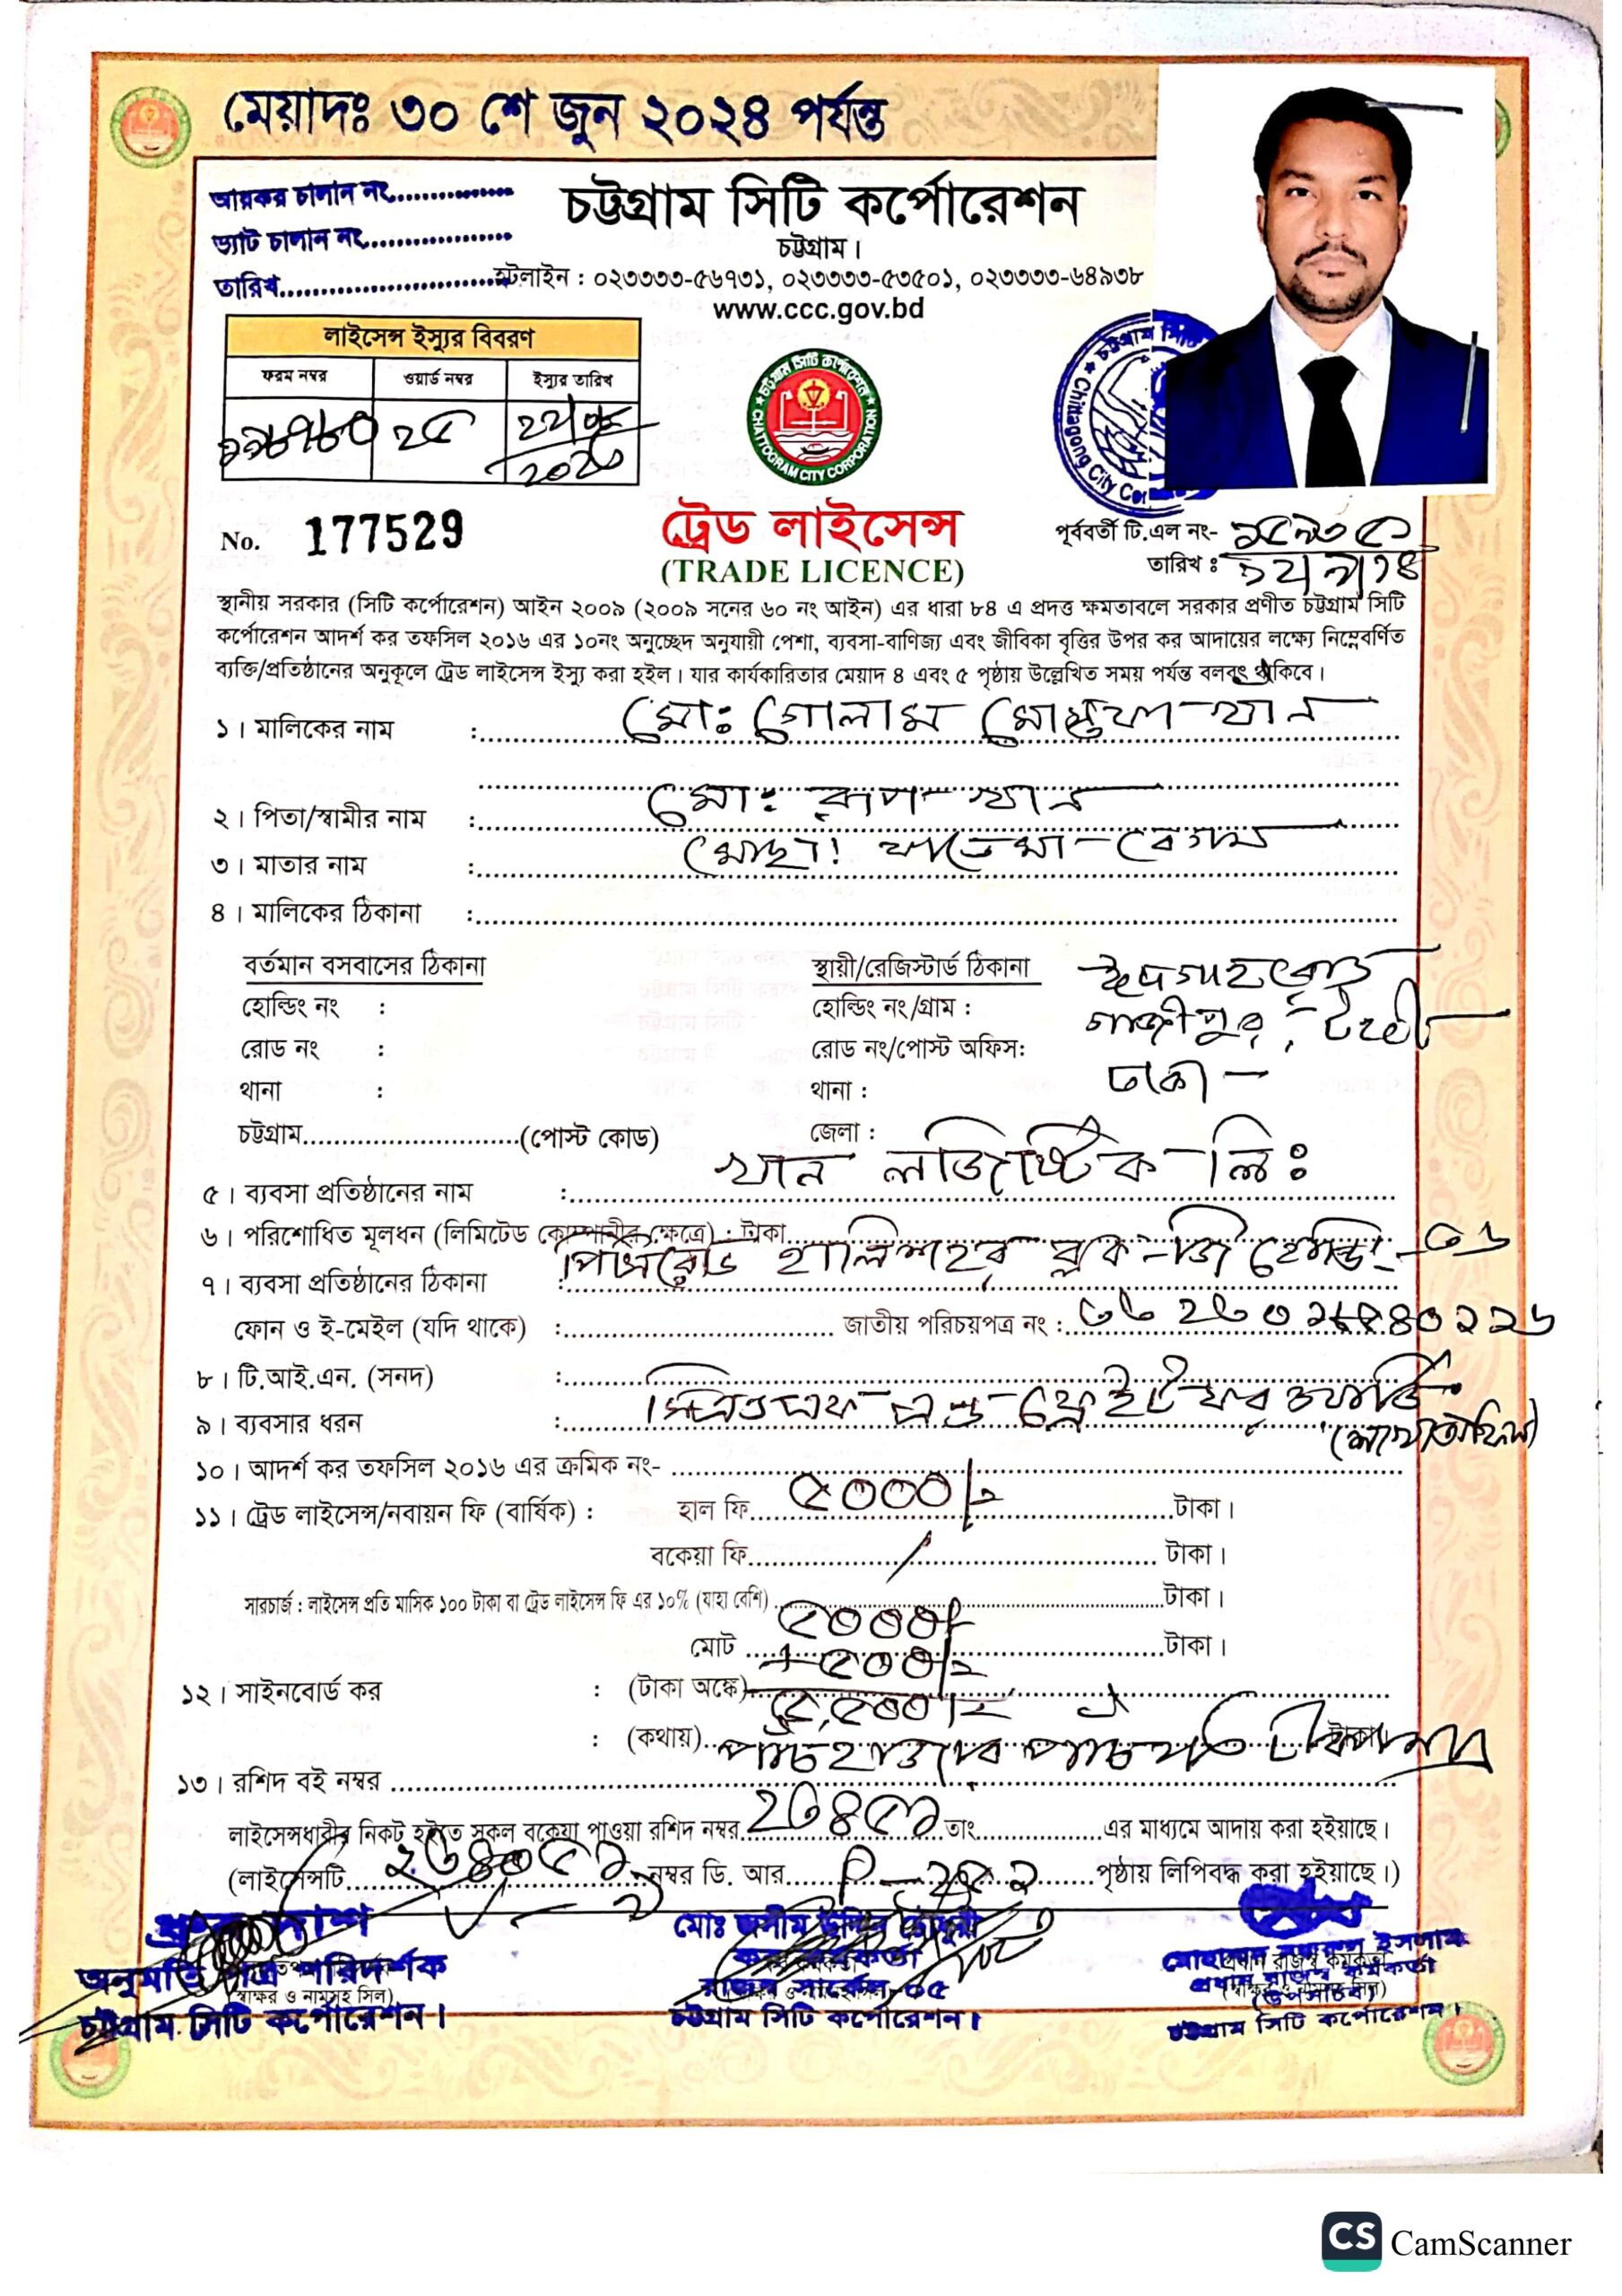 মেয়াদঃ ৩০ শে জুন ২০২৪ পর্যন্ত
আয়কর চালান নং..............
ভ্যাট চালান নং..................
তারিখ............................
চট্টগ্রাম সিটি কর্পোরেশন
চট্টগ্রাম।
হটলাইন : ০২৩৩৩৩-৫৬৭৩১, ০২৩৩৩৩-৫৩৫০১, ০২৩৩৩৩-৬৪৯৩৮
www.ccc.gov.bd
লাইসেন্স ইস্যুর বিবরণ
ফরম নম্বর ওয়ার্ড নম্বর ইস্যুর তারিখ
২৫
চট্টগ্রাম সিটি কর্পোরেশন
CHATTOGRAM CITY CORPORATION
চট্টগ্রাম সিটি
Chittagong City Cor
No. 177529
ট্রেড লাইসেন্স
(TRADE LICENCE)
পূর্ববর্তী টি.এল নং-
তারিখ :
স্থানীয় সরকার (সিটি কর্পোরেশন) আইন ২০০৯ (২০০৯ সনের ৬০ নং আইন) এর ধারা ৮৪ এ প্রদত্ত ক্ষমতাবলে সরকার প্রণীত চট্টগ্রাম সিটি
কর্পোরেশন আদর্শ কর তফসিল ২০১৬ এর ১০নং অনুচ্ছেদ অনুযায়ী পেশা, ব্যবসা-বাণিজ্য এবং জীবিকা বৃত্তির উপর কর আদায়ের লক্ষ্যে নিম্নেবর্ণিত
ব্যক্তি/প্রতিষ্ঠানের অনুকূলে ট্রেড লাইসেন্স ইস্যু করা হইল। যার কার্যকারিতার মেয়াদ ৪ এবং ৫ পৃষ্ঠায় উল্লেখিত সময় পর্যন্ত বলবৎ থাকিবে।
১। মালিকের নাম : মোঃ গোলাম মোস্তফা খাঁন
২। পিতা/স্বামীর নাম : মোঃ রূপ খান
৩। মাতার নাম : মোছাঃ ফাতেমা বেগম
৪। মালিকের ঠিকানা :
বর্তমান বসবাসের ঠিকানা স্থায়ী/রেজিস্টার্ড ঠিকানা ঈদগাহ রোড
হোল্ডিং নং : হোল্ডিং নং/গ্রাম : গাজীপুর, টঙ্গী
রোড নং : রোড নং/পোস্ট অফিস:
থানা : থানা : ঢাকা
চট্টগ্রাম..............................(পোস্ট কোড) জেলা :
৫। ব্যবসা প্রতিষ্ঠানের নাম : খান লজিষ্টিক লিঃ
৬। পরিশোধিত মূলধন (লিমিটেড কোম্পানীর ক্ষেত্রে) : টাকা
৭। ব্যবসা প্রতিষ্ঠানের ঠিকানা : হালিশহর ব্লক-জি
ফোন ও ই-মেইল (যদি থাকে) : জাতীয় পরিচয়পত্র নং :
৮। টি.আই.এন. (সনদ) :
৯। ব্যবসার ধরন : সিএন্ডএফ এন্ড ফ্রেইট ফরওয়ার্ডিং
১০। আদর্শ কর তফসিল ২০১৬ এর ক্রমিক নং-
১১। ট্রেড লাইসেন্স/নবায়ন ফি (বার্ষিক) : হাল ফি ৫০০০/- টাকা।
বকেয়া ফি / টাকা।
সারচার্জ : লাইসেন্স প্রতি মাসিক ১০০ টাকা বা ট্রেড লাইসেন্স ফি এর ১০% (যাহা বেশি) টাকা।
মোট ৫০০০/- টাকা।
+ ৫০০/-
১২। সাইনবোর্ড কর : (টাকা অঙ্কে) ৫,৫০০/-
: (কথায়) পাঁচ হাজার পাঁচশত টাকা মাত্র টাকা।
১৩। রশিদ বই নম্বর
লাইসেন্সধারীর নিকট হইতে সকল বকেয়া পাওয়া রশিদ নম্বর তাং এর মাধ্যমে আদায় করা হইয়াছে।
(লাইসেন্সটি নম্বর ডি. আর পৃষ্ঠায় লিপিবদ্ধ করা হইয়াছে।)
দাশ
অনুমতি পত্র পরিদর্শক
(স্বাক্ষর ও নামসহ সিল)
চট্টগ্রাম সিটি কর্পোরেশন।
মোঃ জসীম উদ্দিন চৌধুরী
কর কর্মকর্তা
রাজস্ব সার্কেল-০৫
চট্টগ্রাম সিটি কর্পোরেশন।
মোহাম্মদ নজরুল ইসলাম
প্রধান রাজস্ব কর্মকর্তা
(উপসচিব)
চট্টগ্রাম সিটি কর্পোরেশন।
CS CamScanner